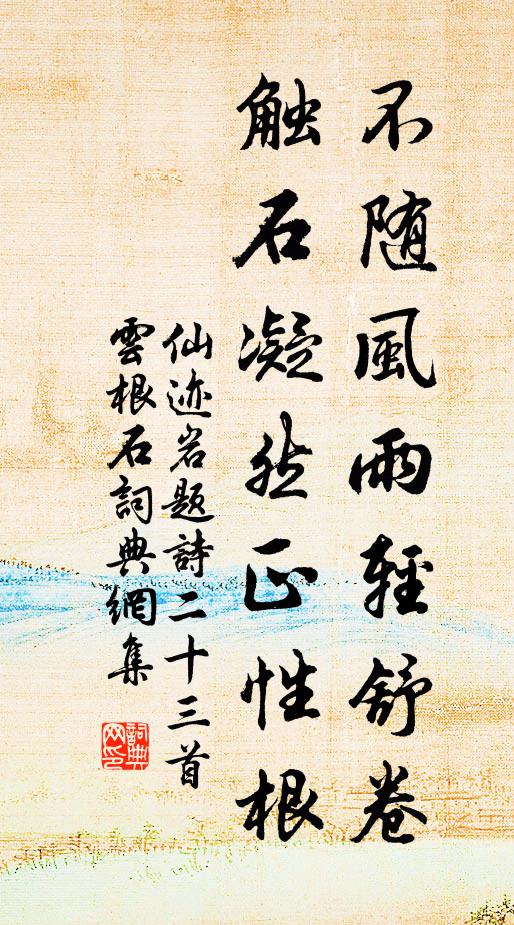 不随風雨輕舒卷
触石凝然正性根
仙迹岩题詩二十三首
雲根石詞典網集
詞典
网印